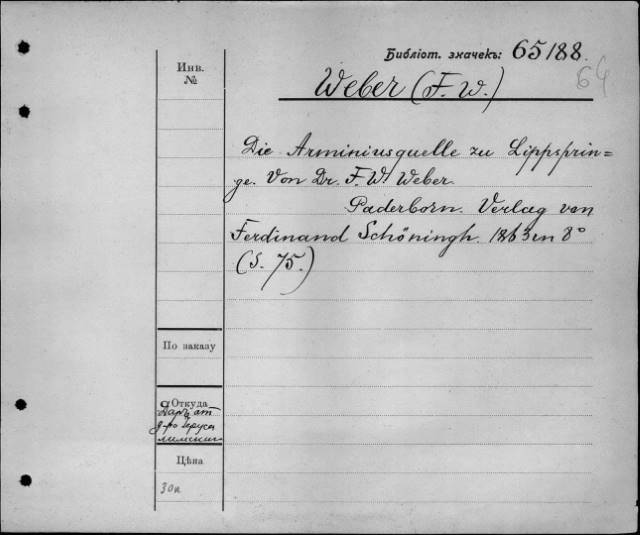 Библіот. значекъ: 65/88.
64
Инв.
№
Weber (F. W.)
Die Arminiusquelle zu Lippsprin=
ge. Von Dr. F. W. Weber.
Paderborn. Verlag von
Ferdinand Schöningh. 1863 in 8°
(S. 75.)
По заказу
Откуда
Даръ от
д-ра Іеруса
лимскаго
Цѣна
30к